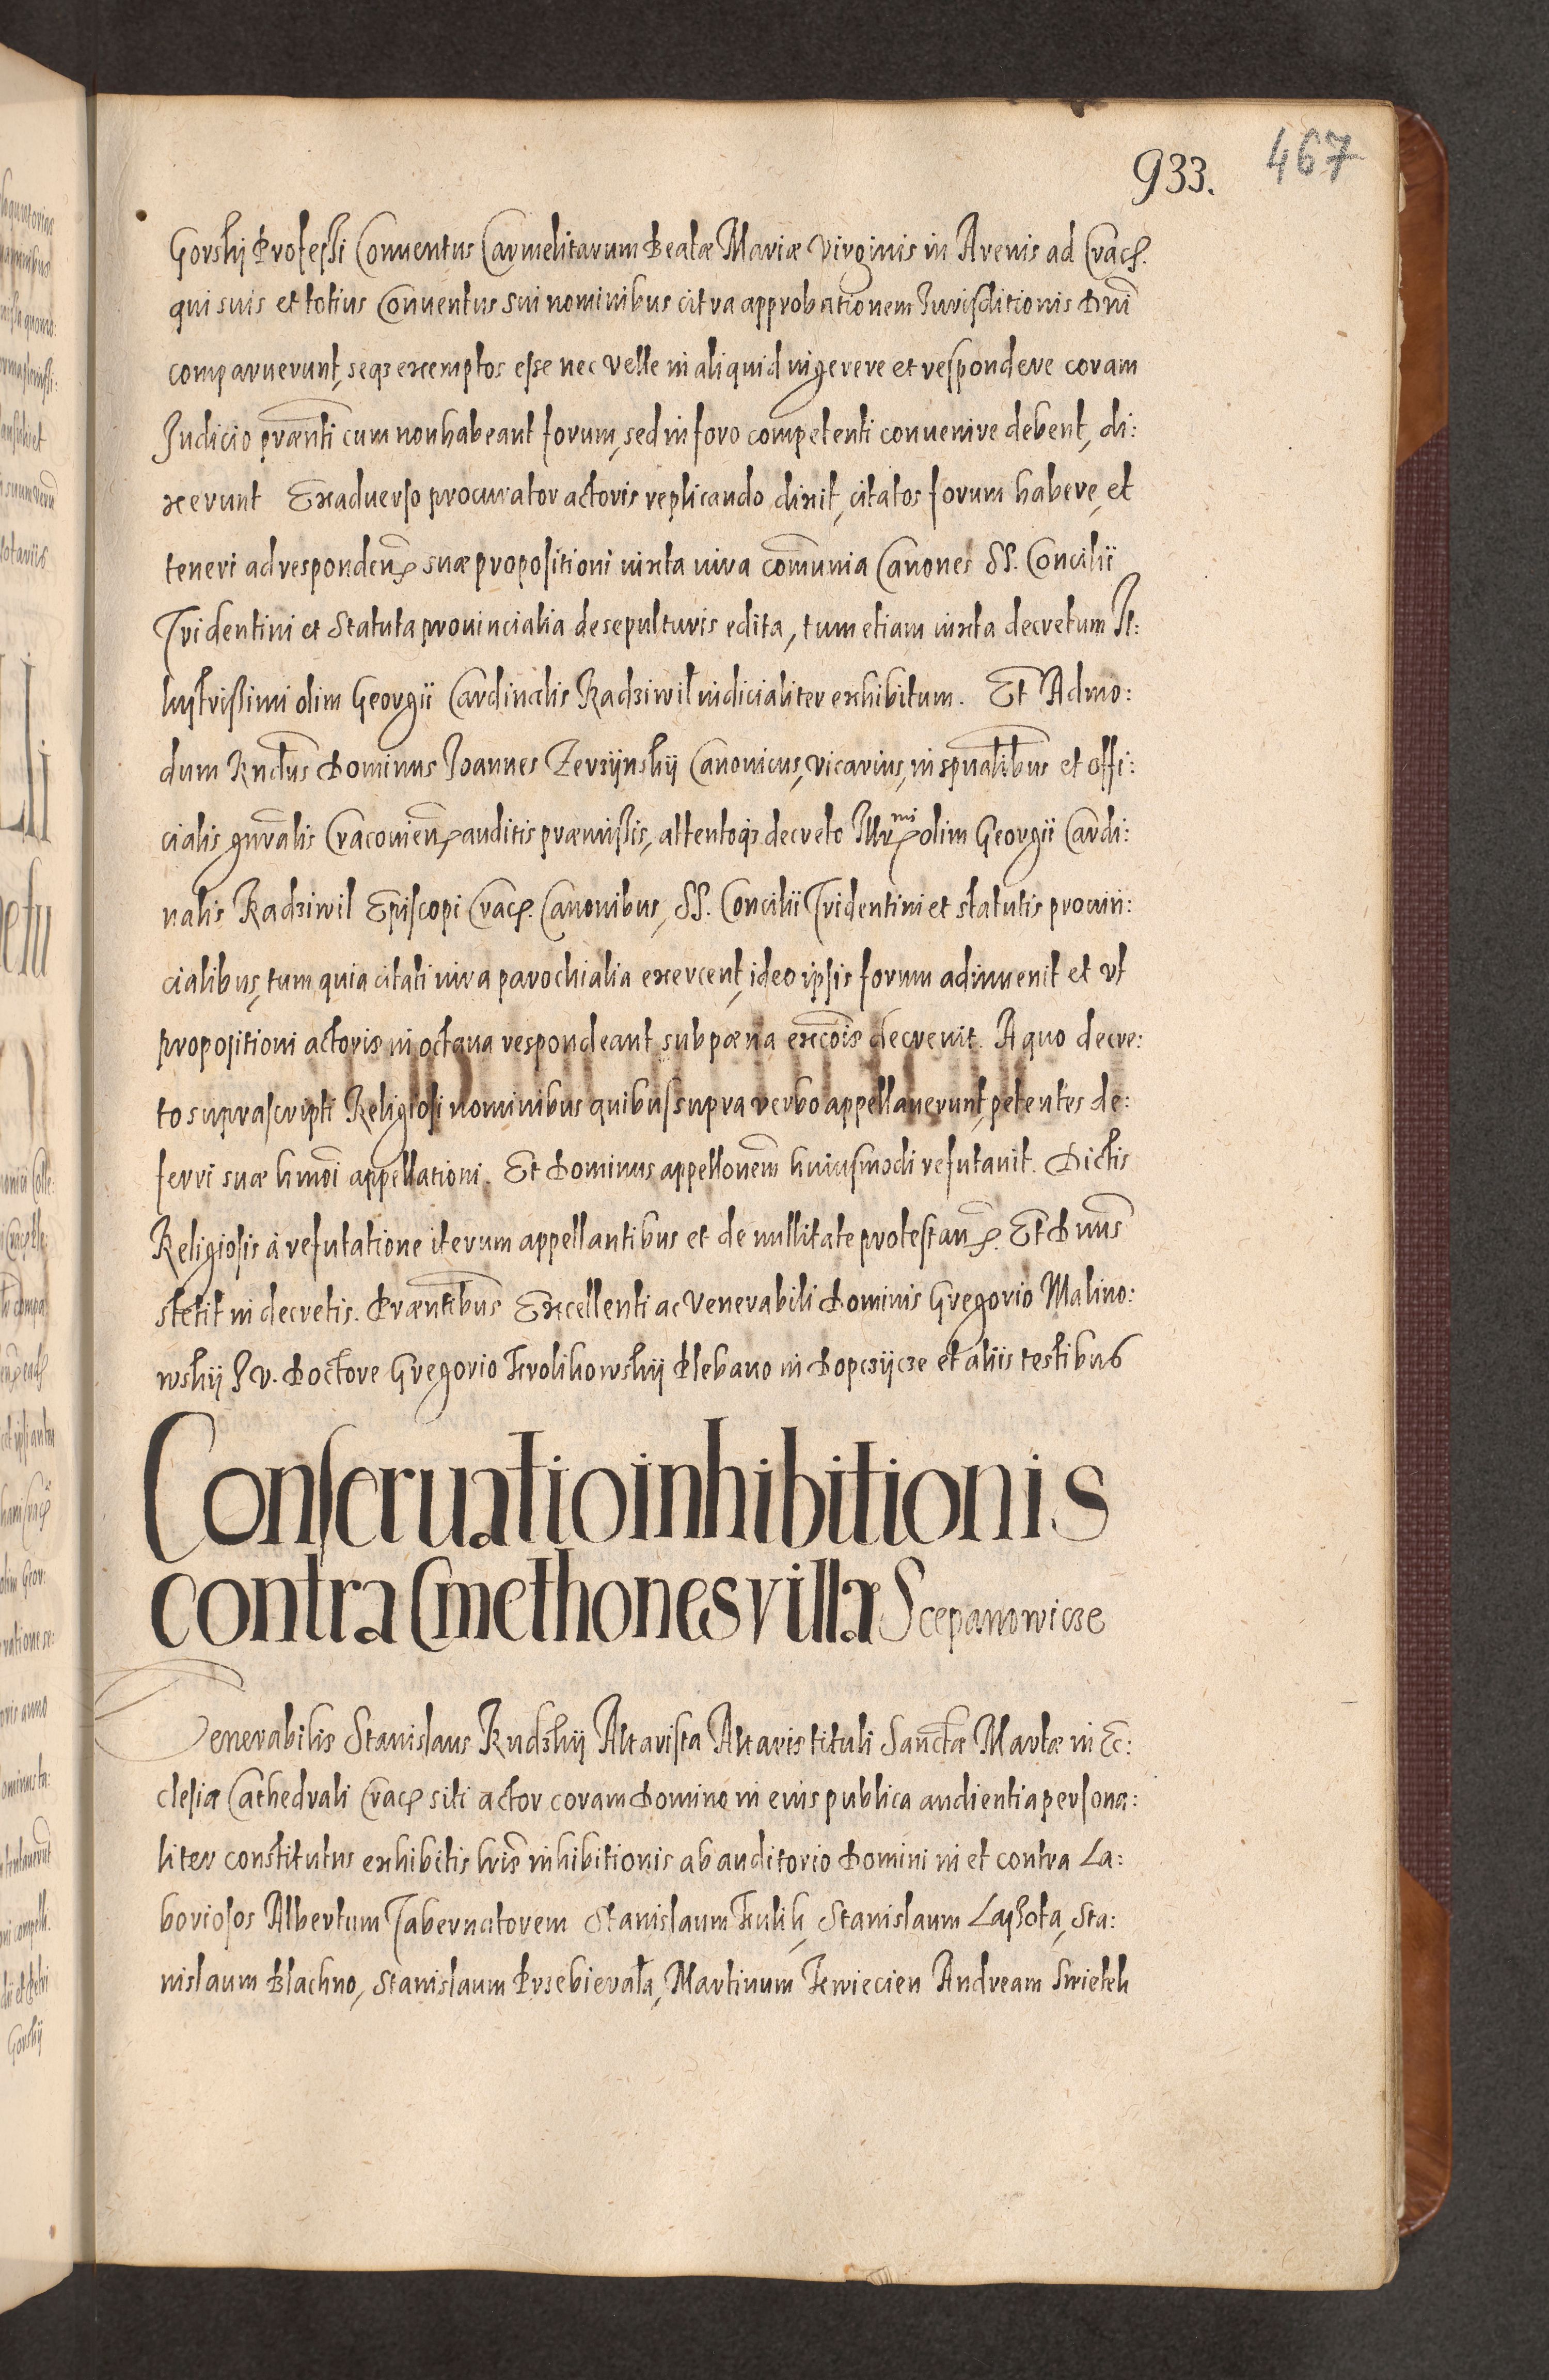 933. 467
Gorskij Professi Conuentus Carmelitarum Beatæ Mariæ Virginis in Arenis ad Crac.
qui suis et totius Conuentus sui nominibus citra approbationem Jurisditionis Dni
comparuerunt, seqȝ exemptos esse nec velle in aliquid ingerere et respondere coram
Judicio præñti cum non habeant forum, sed in foro competenti conuenire debent, di:
xerunt Exaduerso procurator actoris replicando dixit, citatos forum habere, et
teneri ad responden suæ propositioni iuxta iura comunia Canones SS. Concilii
Tridentini et Statuta prouincialia de sepulturis edita, tum etiam iuxta decretum Il:
lustrissimi olim Georgii Cardinalis Radziwił iudicialiter exhibitum. Et Admo:
dum Rndus Dominus Joannes Zerzijnskij Canonicus, vicarius, in spualibus et offi:
cialis gnralis Cracouien auditis præmissis, attentoqȝ decreto Illrmi olim Georgii Cardi:
nalis Radziwil Episcopi Crac. Canonibus, SS. Concilii Tridentini et statutis prouin:
cialibus, tum quia citati iura parochialia exercent, ideo ipsis forum adinuenit et vt
propositioni actoris in octaua respondeant sub pæna excois decreuit. A quo decre:
to suprascripti Religiosi nominibus quibus supra verbo appellauerunt, petentes de:
ferri suæ hmoi appellationi. Et Dominus appellonem huiusmodi refutauit. Dictis
Religiosis à refutatione iterum appellantibus et de nullitate protestan. Et Dnus
stetit in decretis. Præntibus Excellenti ac Venerabili Dominis Gregorio Malino:
wskij J V. Doctore Gregorio Krolikowskij Plebano in Dopczijcze et aliis testibus
Conseruatio inhibitionis
contra Cmethones villæ Scepanowicze
Venerabilis Stanislaus Rudzkij Altarista Altaris tituli Sanctæ Martæ in Ec:
clesiæ Cathedrali Crac siti actor coram Domino in eius publica audientia persona:
liter constitutus exhibitis lris inhibitionis ab auditorio Domini in et contra La:
boriosos Albertum Tabernatorem Stanislaum Kulik, Stanislaum Laphota, Sta:
nislaum Blachno, Stanislaum Przebierała, Martinum Kwiecien Andream Swietek